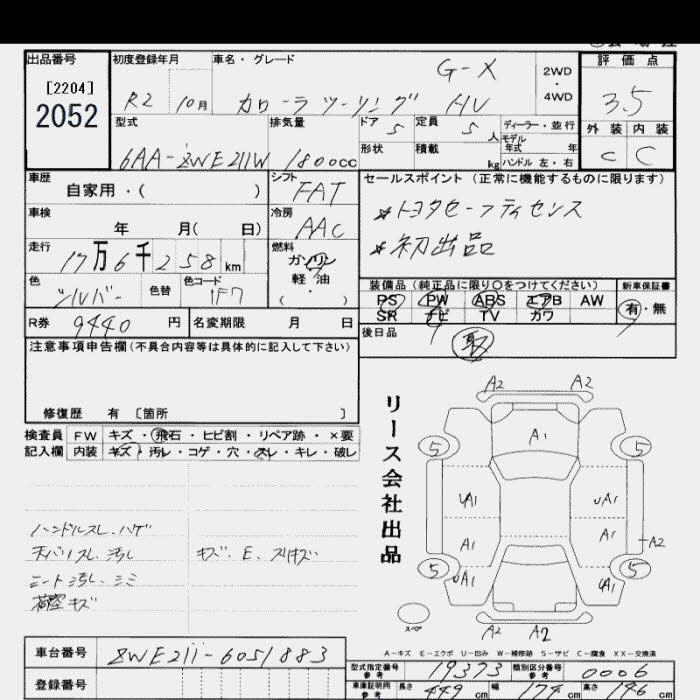 出品番号 初度登録年月 車名・グレード 評価点
[2204] G-X 2WD
2052 R2 10月 カローラツーリング HV ・ 4WD 3.5
型式 排気量 ドア 5 定員 5人 ディーラー・並行 外装 内装
6AA-ZWE211W 1800cc 形状 積載 kg モデル年式 年 ハンドル 左・右 C C
車歴 自家用・( ) シフト FAT セールスポイント (正常に機能するものに限ります)
車検 年 月( 日) 冷房 AAC *トヨタセーフティセンス
走行 17万6千258km 燃料 ガソリン *初出品
軽油
色 シルバー 色替 色コード 1F7 ( ・ )
装備品 (純正品に限り○をつけてください) 新車保証書
PS PW ABS エアB AW 有・無
SR ナビ TV カワ
R券 9440円 名変期限 月 日 後日品
取
注意事項申告欄(不具合内容等は具体的に記入して下さい)
修復歴 有 [箇所 ]
検査員 FW キズ・飛石・ヒビ割・リペア跡・×要
記入欄 内装 キズ・汚レ・コゲ・穴・スレ・キレ・破レ
リース会社出品
A2 A2
A1
5 5
UA1 UA1
A1 A1 A2
5 5
UA1 UA1
A2 A2
スペア
ハンドルスレ、ハゲ
天バリスレ、汚レ キズ、E、スリキズ
シート汚レ、シミ
荷室キズ
A-キズ E-エクボ U-凹み W-補修跡 S-サビ C-腐食 XX-交換済
車台番号 ZWE211-6051883
型式指定番号 参考 19373 類別区分番号 参考 0006
登録番号 車庫証明用 参考 長さ 449cm 幅 174cm 高さ 146cm